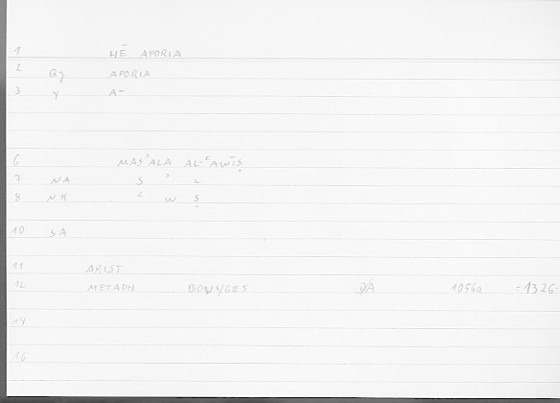 1 HĒ APORIA
2 Gg APORIA
3 Y A-
6 MASʾALA AL-ʿAWĪṢ
7 NA S ʾ L
8 NK ʿ W Ṣ
10 SA
11 ARIST
12 METAPH BOUYGES 1056a =1326.
14
16